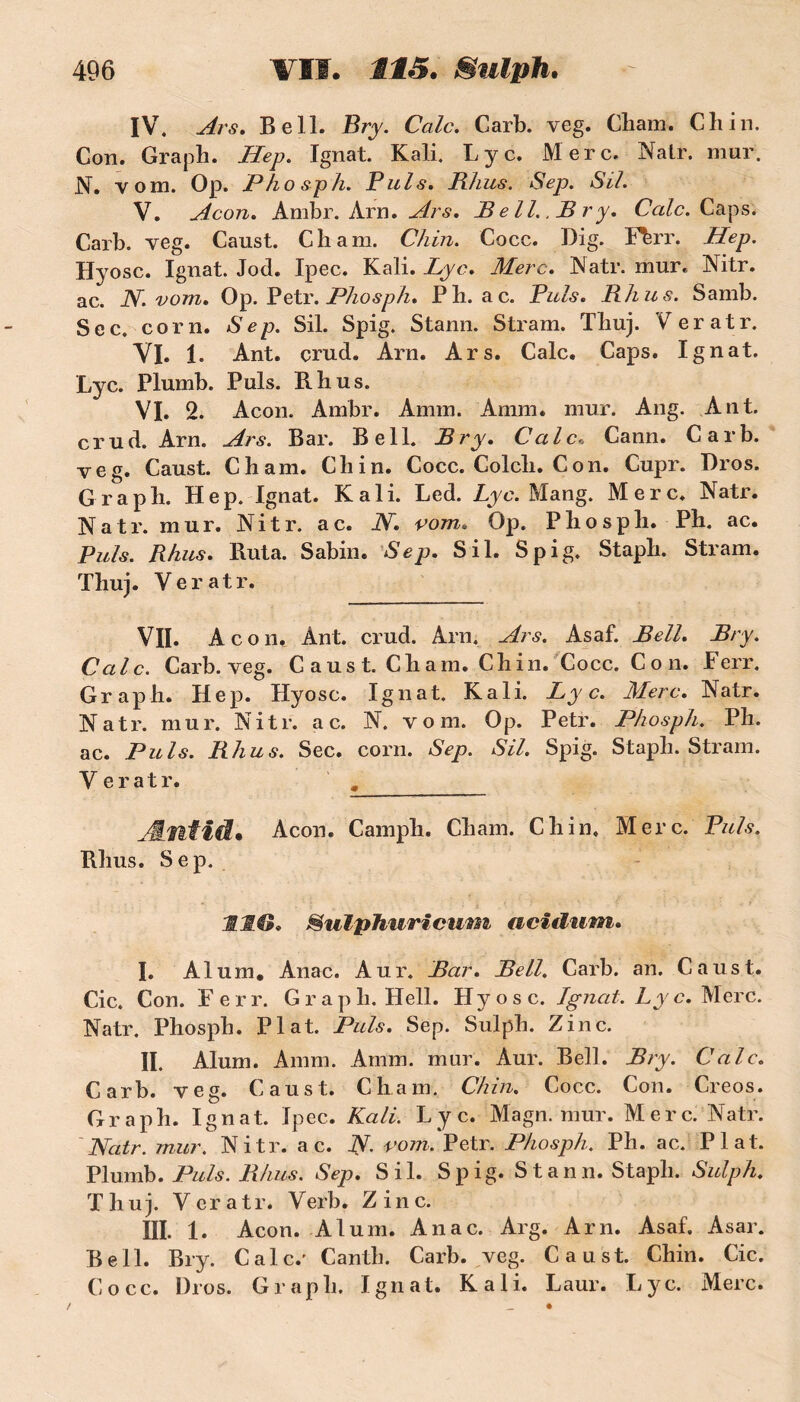 496 VII. 115. Sulph.
IV. Ars. Bell. Bry. Calc. Carb. veg. Cham. Chin.
Con. Graph. Hep. Ignat. Kali. Lyc. Merc. Natr. mur.
N. vom. Op. Phosph. Puls. Rhus. Sep. Sil.
V. Acon. Ambr. Arn. Ars. Bell. Bry. Calc. Caps.
Carb. veg. Caust. Cham. Chin. Cocc. Dig. Ferr. Hep.
Hyosc. Ignat. Jod. Ipec. Kali. Lyc. Merc. Natr. mur. Nitr.
ac. N. vom. Op. Petr. Phosph. Ph. ac. Puls. Rhus. Samb.
Sec. corn. Sep. Sil. Spig. Stann. Stram. Thuj. Veratr.
VI. 1. Ant. crud. Arn. Ars. Calc. Caps. Ignat.
Lyc. Plumb. Puls. Rhus.
VI. 2. Acon. Ambr. Amm. Amm. mur. Ang. Ant.
crud. Arn. Ars. Bar. Bell. Bry. Calc. Cann. Carb.
veg. Caust. Cham. Chin. Cocc. Colch. Con. Cupr. Dros.
Graph. Hep. Ignat. Kali. Led. Lyc. Mang. Merc. Natr.
Natr. mur. Nitr. ac. N. vom. Op. Phosph. Ph. ac.
Puls. Rhus. Ruta. Sabin. Sep. Sil. Spig. Staph. Stram.
Thuj. Veratr.
VII. Acon. Ant. crud. Arn. Ars. Asaf. Bell. Bry.
Calc. Carb. veg. Caust. Cham. Chin. Cocc. Con. Ferr.
Graph. Hep. Hyosc. Ignat. Kali. Lyc. Merc. Natr.
Natr. mur. Nitr. ac. N. vom. Op. Petr. Phosph. Ph.
ac. Puls. Rhus. Sec. corn. Sep. Sil. Spig. Staph. Stram.
Veratr.
Antid. Acon. Camph. Cham. Chin. Merc. Puls.
Rhus. Sep.
116. Sulphuricum acidum.
I. Alum. Anac. Aur. Bar. Bell. Carb. an. Caust.
Cic. Con. Ferr. Graph. Hell. Hyosc. Ignat. Lyc. Merc.
Natr. Phosph. Plat. Puls. Sep. Sulph. Zinc.
II. Alum. Amm. Amm. mur. Aur. Bell. Bry. Calc.
Carb. veg. Caust. Cham. Chin. Cocc. Con. Creos.
Graph. Ignat. Ipec. Kali. Lyc. Magn. mur. Merc. Natr.
Natr. mur. Nitr. ac. N. vom. Petr. Phosph. Ph. ac. Plat.
Plumb. Puls. Rhus. Sep. Sil. Spig. Stann. Staph. Sulph.
Thuj. Veratr. Verb. Zinc.
III. 1. Acon. Alum. Anac. Arg. Arn. Asaf. Asar.
Bell. Bry. Calc. Canth. Carb. veg. Caust. Chin. Cic.
Cocc. Dros. Graph. Ignat. Kali. Laur. Lyc. Merc.